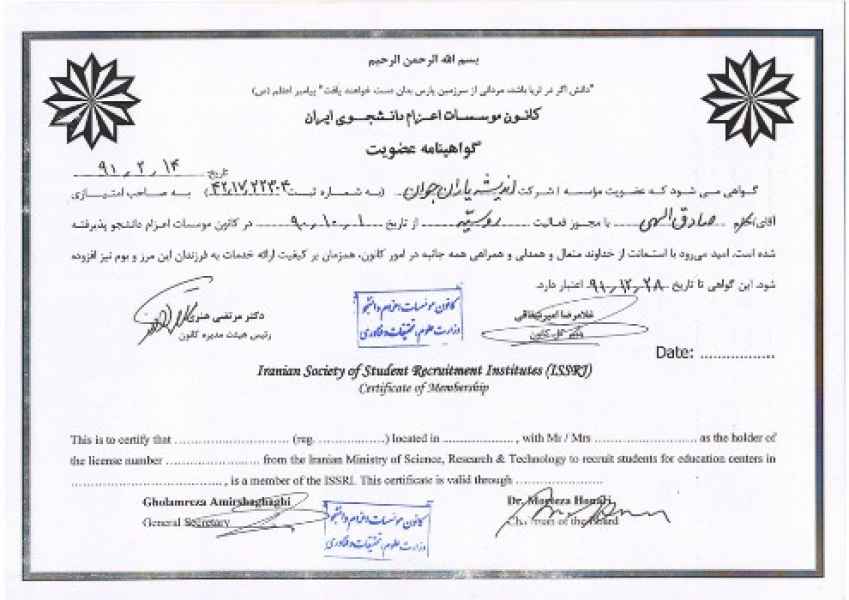 بسم الله الرحمن الرحیم
"دانش اگر در ثریا باشد، مردانی از سرزمین پارس بدان دست خواهند یافت" پیامبر اعظم (ص)
کانون موسسات اعزام دانشجوی ایران
گواهینامه عضویت
تاریخ: ۹۱٫۲٫۱۴
گواهی می شود که عضویت مؤسسه / شرکت اندیشه یاران جوان (به شماره ثبت) به صاحب امتیازی
آقای صادق الهی با مجوز فعالیت روسیه از تاریخ ۹۰٫۱۰٫۱ در کانون موسسات اعزام دانشجو پذیرفته
شده است. امید می‌رود با استعانت از خداوند متعال و همدلی و همراهی همه جانبه در امور کانون، همزمان بر کیفیت ارائه خدمات به فرزندان این مرز و بوم نیز افزوده
شود. این گواهی تا تاریخ ۹۱٫۱۲٫۲۸ اعتبار دارد.
غلامرضا امیرشقاقی
دبیر کل کانون
کانون موسسات اعزام دانشجو
وزارت علوم، تحقیقات و فناوری
دکتر مرتضی هنری
رئیس هیئت مدیره کانون
Date: ................
Iranian Society of Student Recruitment Institutes (ISSRI)
Certificate of Membership
This is to certify that .......................... (reg. ...............) located in ................ , with Mr / Mrs ...................... as the holder of
the license number ..................... from the Iranian Ministry of Science, Research & Technology to recruit students for education centers in
................................... , is a member of the ISSRI. This certificate is valid through ....................
Gholamreza Amirshaghaghi
General Secretary
کانون موسسات اعزام دانشجو
وزارت علوم، تحقیقات و فناوری
Dr. Morteza Honari
Chairman of the Board